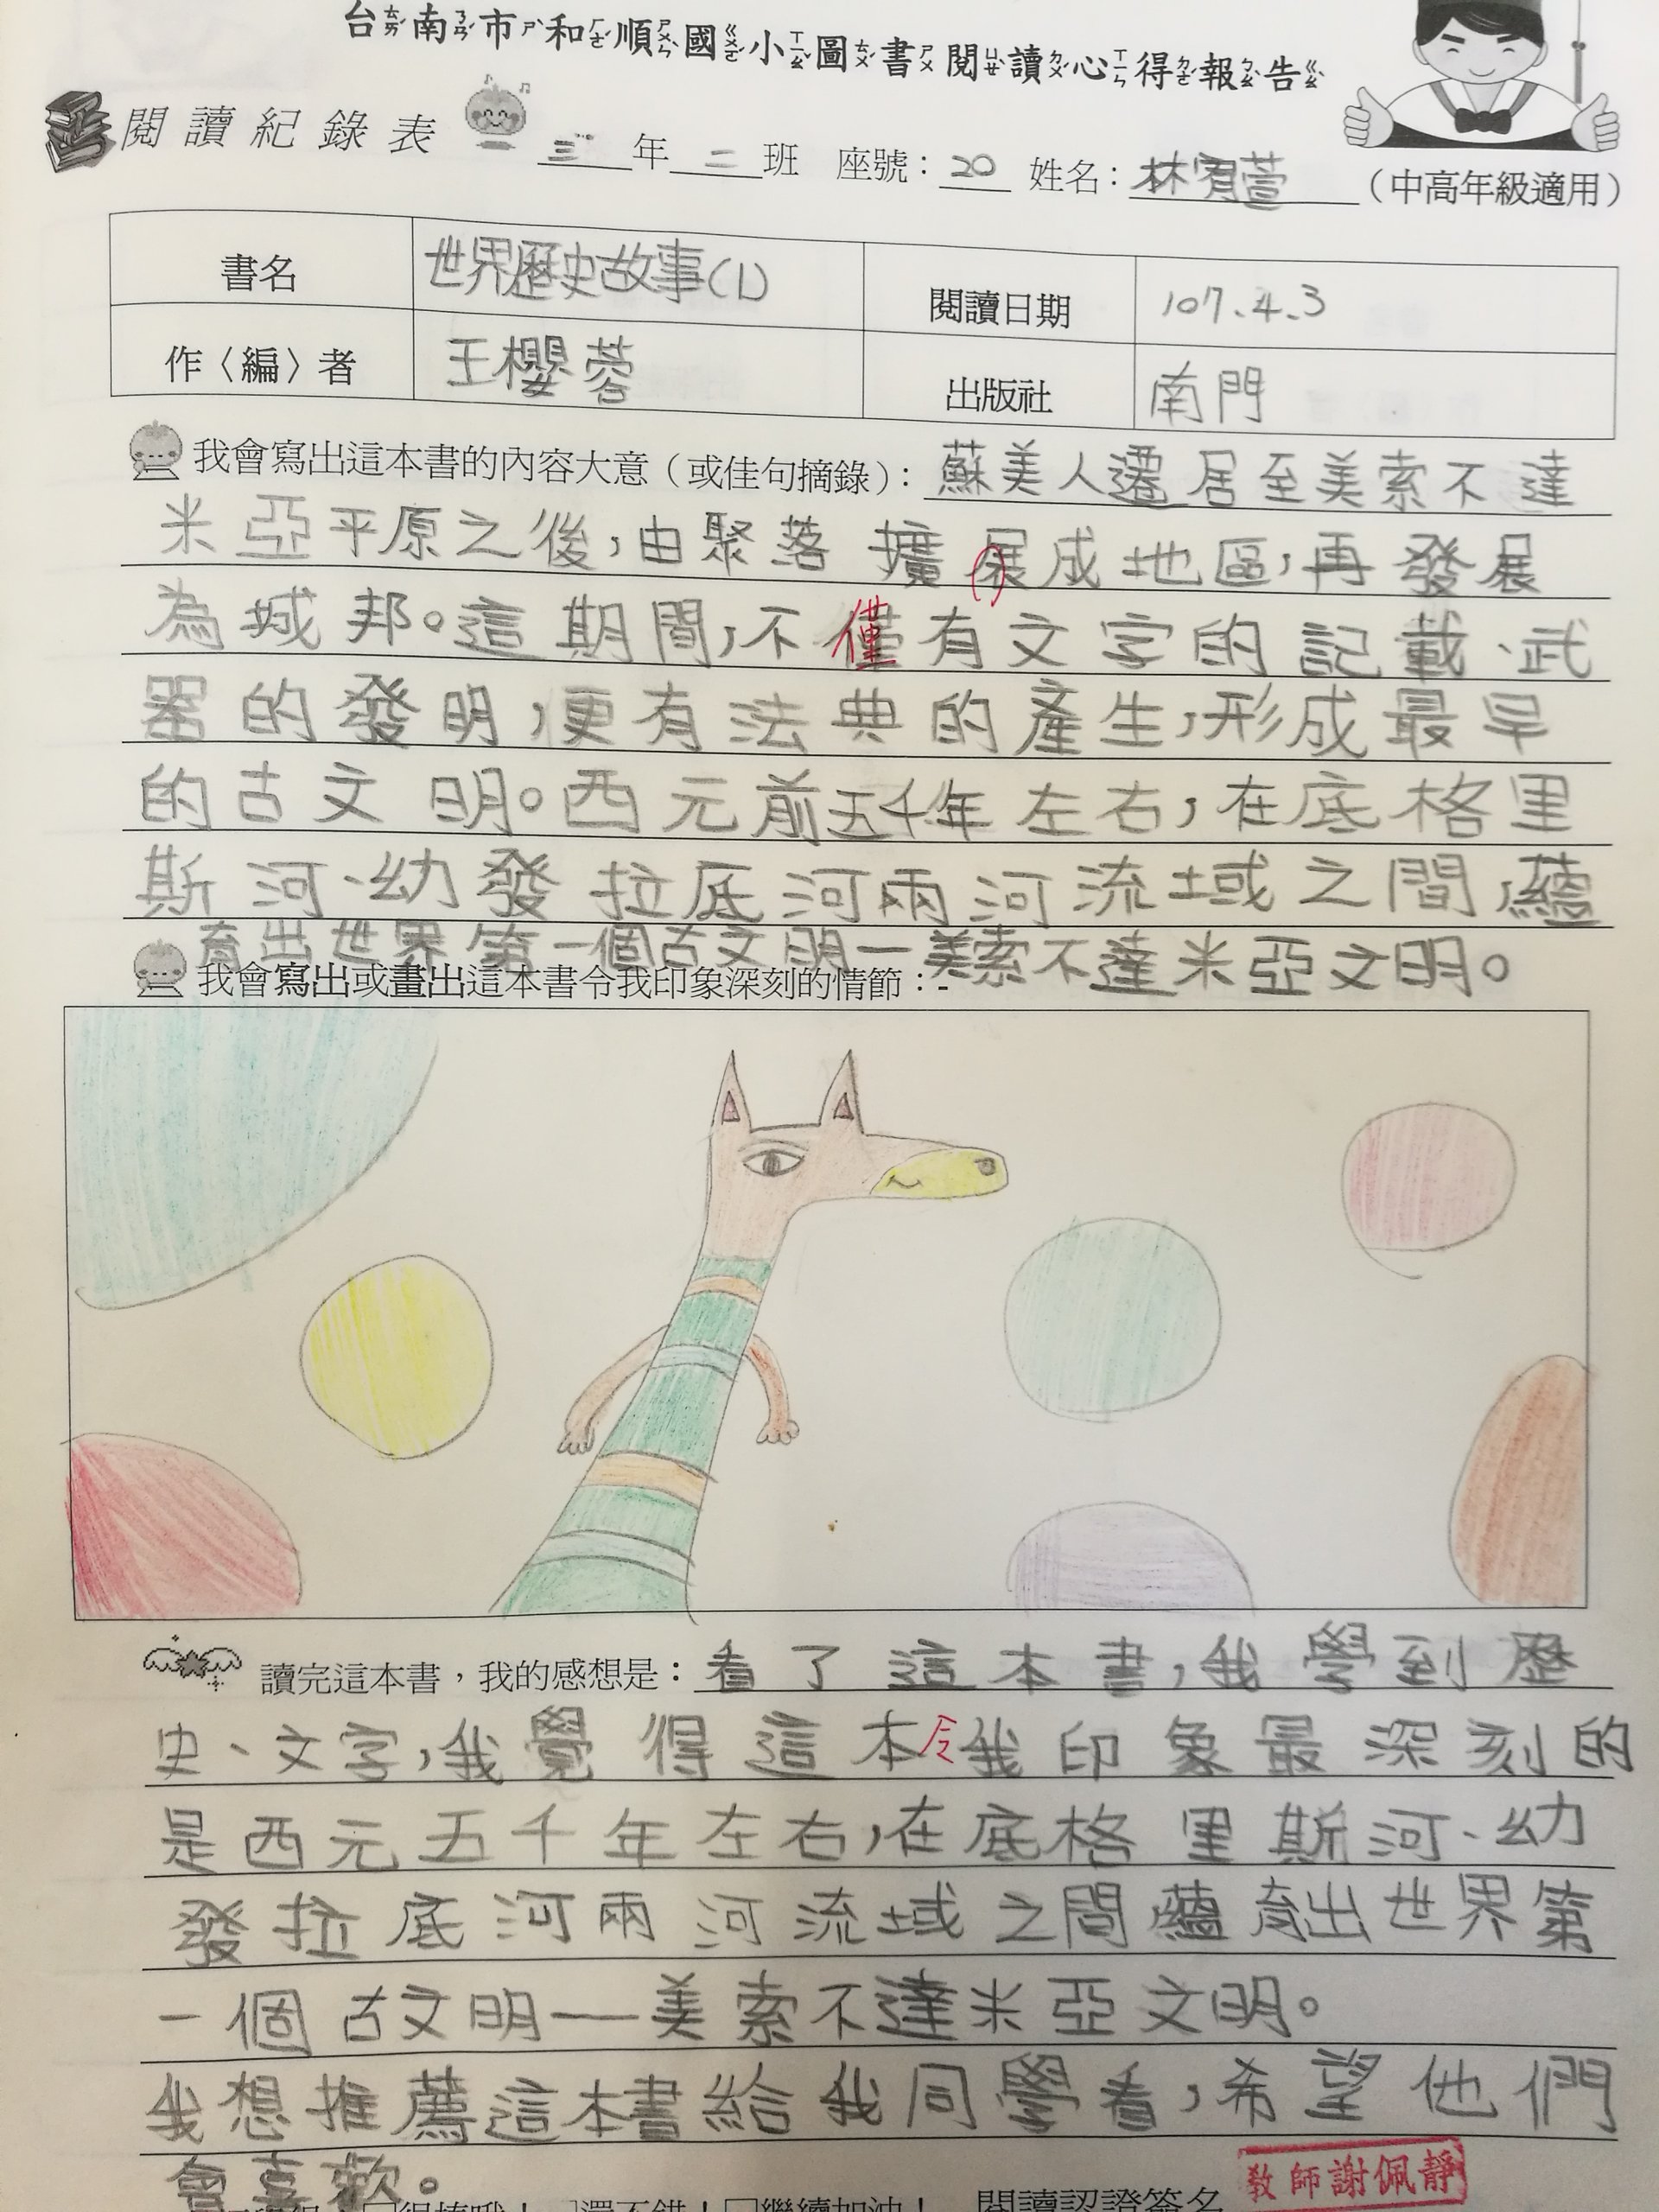 台ㄊㄞˊ南ㄋㄢˊ市ㄕˋ和ㄏㄜˊ順ㄕㄨㄣˋ國ㄍㄨㄛˊ小ㄒㄧㄠˇ圖ㄊㄨˊ書ㄕㄨ閱ㄩㄝˋ讀ㄉㄨˊ心ㄒㄧㄣ得ㄉㄜˊ報ㄅㄠˋ告ㄍㄠˋ
閱讀紀錄表 三年二班 座號：20 姓名：林宥萱（中高年級適用）
書名 世界歷史故事(1) 閱讀日期 107.4.3
作〈編〉者 王櫻蓉 出版社 南門
我會寫出這本書的內容大意（或佳句摘錄）：蘇美人遷居至美索不達
米亞平原之後，由聚落擴展成地區，再發展
為城邦。這期間，不僅有文字的記載、武
器的發明，更有法典的產生，形成最早
的古文明。西元前五千年左右，在底格里
斯河、幼發拉底河兩河流域之間，蘊
育出世界第一個古文明—美索不達米亞文明。
我會寫出或畫出這本書令我印象深刻的情節：-
讀完這本書，我的感想是：看了這本書，我學到歷
史、文字，我覺得這本令我印象最深刻的
是西元五千年左右，在底格里斯河、幼
發拉底河兩河流域之間蘊育出世界第
一個古文明—美索不達米亞文明。
我想推薦這本書給我同學看，希望他們
會喜歡。
教師謝佩靜
□得換哦！□還不錯！□繼續加油！ 閱讀認證簽名